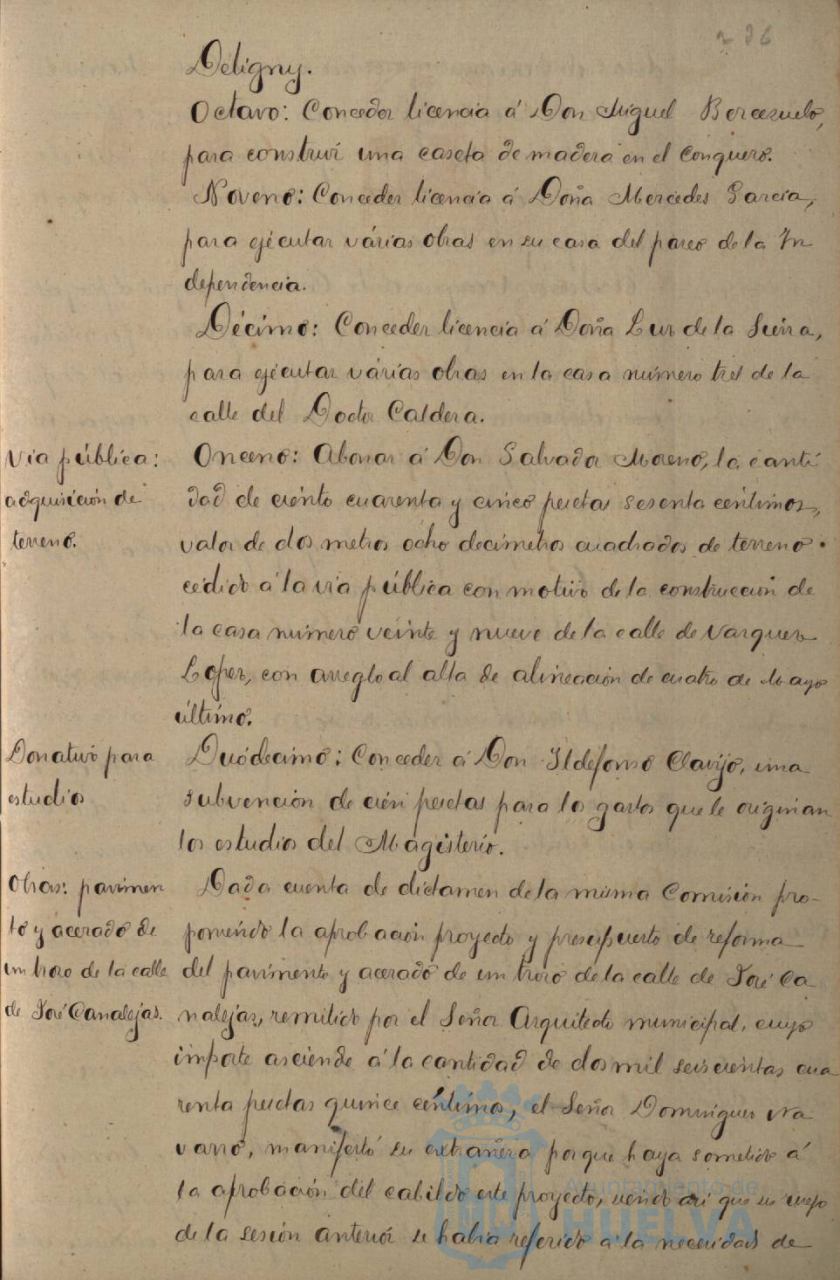 236
Deligny.
Octavo: Conceder licencia á Don Miguel Bercezuelo,
para construir una caseta de madera en el Conquero.
Noveno: Conceder licencia á Doña Mercedes García,
para ejécutar várias obras en su casa del paseo de la In
dependencia.
Décimo: Conceder licencia á Doña Luz de la Sierra,
para ejécutar várias obras en la casa número tres de la
calle del Doctor Caldera.
Via pública:
adquisición de
terreno.
Onceno: Abonar á Don Salvador Moreno, la canti
dad de ciénto cuarenta y cinco pesetas sesenta céntimos,
valor de dos metros ocho decimetros cuadrados de terreno
cédido á la via pública con motivo de la construcción de
la casa número veinte y nueve de la calle de Vazquez
Lopez, con arreglo al alta de alineación de cuatro de Mayo
último.
Donativo para
estudios
Duódecimo: Conceder á Don Ildefonso Clavijo, una
subvención de cién pesetas para los gastos que le originan
los estudios del Magisterio.
Obras: pavimen
to y acerado de
un trozo de la calle
de José Canalejas.
Dada cuenta de dictamen de la misma Comisión pro-
poniendo la aprobación proyecto y presupuesto de reforma
del pavimento y acerado de un trozo de la calle de José Ca
nalejas, remitido por el Señor Arquitecto municipal, cuyo
importe asciende á la cantidad de dos mil seiscientas cua
renta pesetas quince céntimos, el Señor Dominguez Na
varro, manifestó su extrañeza porque haya sometido á
la aprobación del cabildo este proyecto, siendo asi que en
de la sesión anterior se habia referido á la necesidad de
Ayuntamiento de
HUELVA